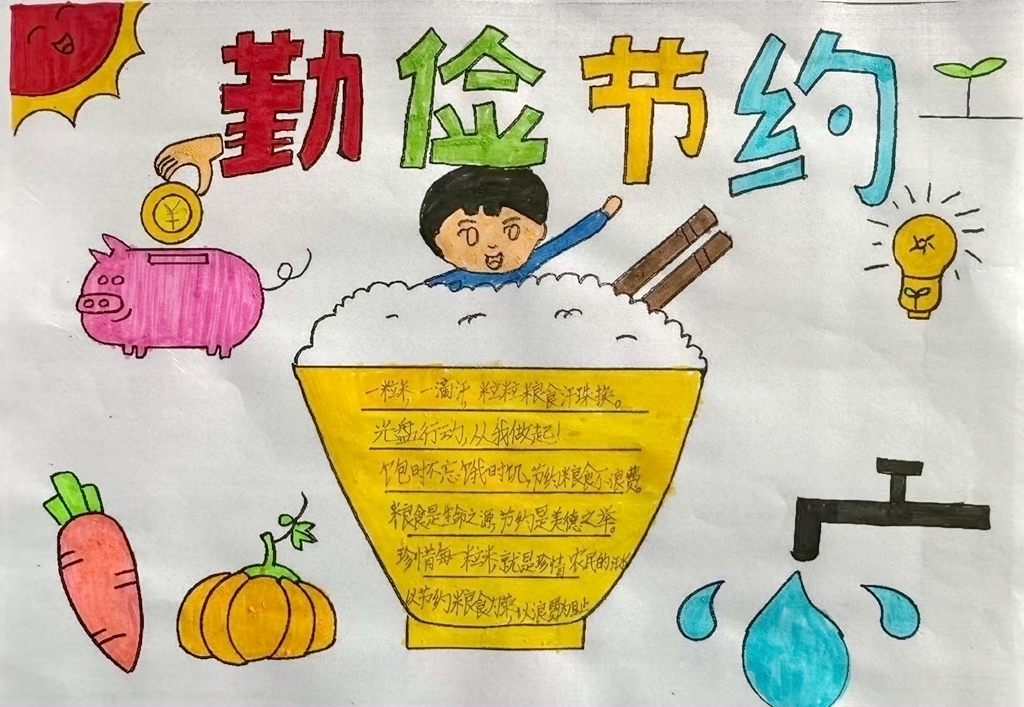 勤俭节约
¥
一粒米,一滴汗,粒粒粮食汗珠换。
光盘行动,从我做起!
饱时不忘饿时饥,节约粮食不浪费。
粮食是生命之源,节约是美德之举。
珍惜每一粒米就是珍惜农民的汗水
以节约粮食为荣,以浪费为耻